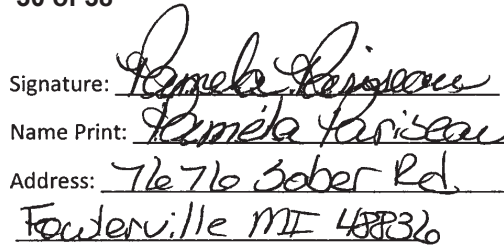 Signature: Pamela Pariseau
Name Print: Pamela Pariseau
Address: 7676 Sober Rd.
Fowlerville MI 48836